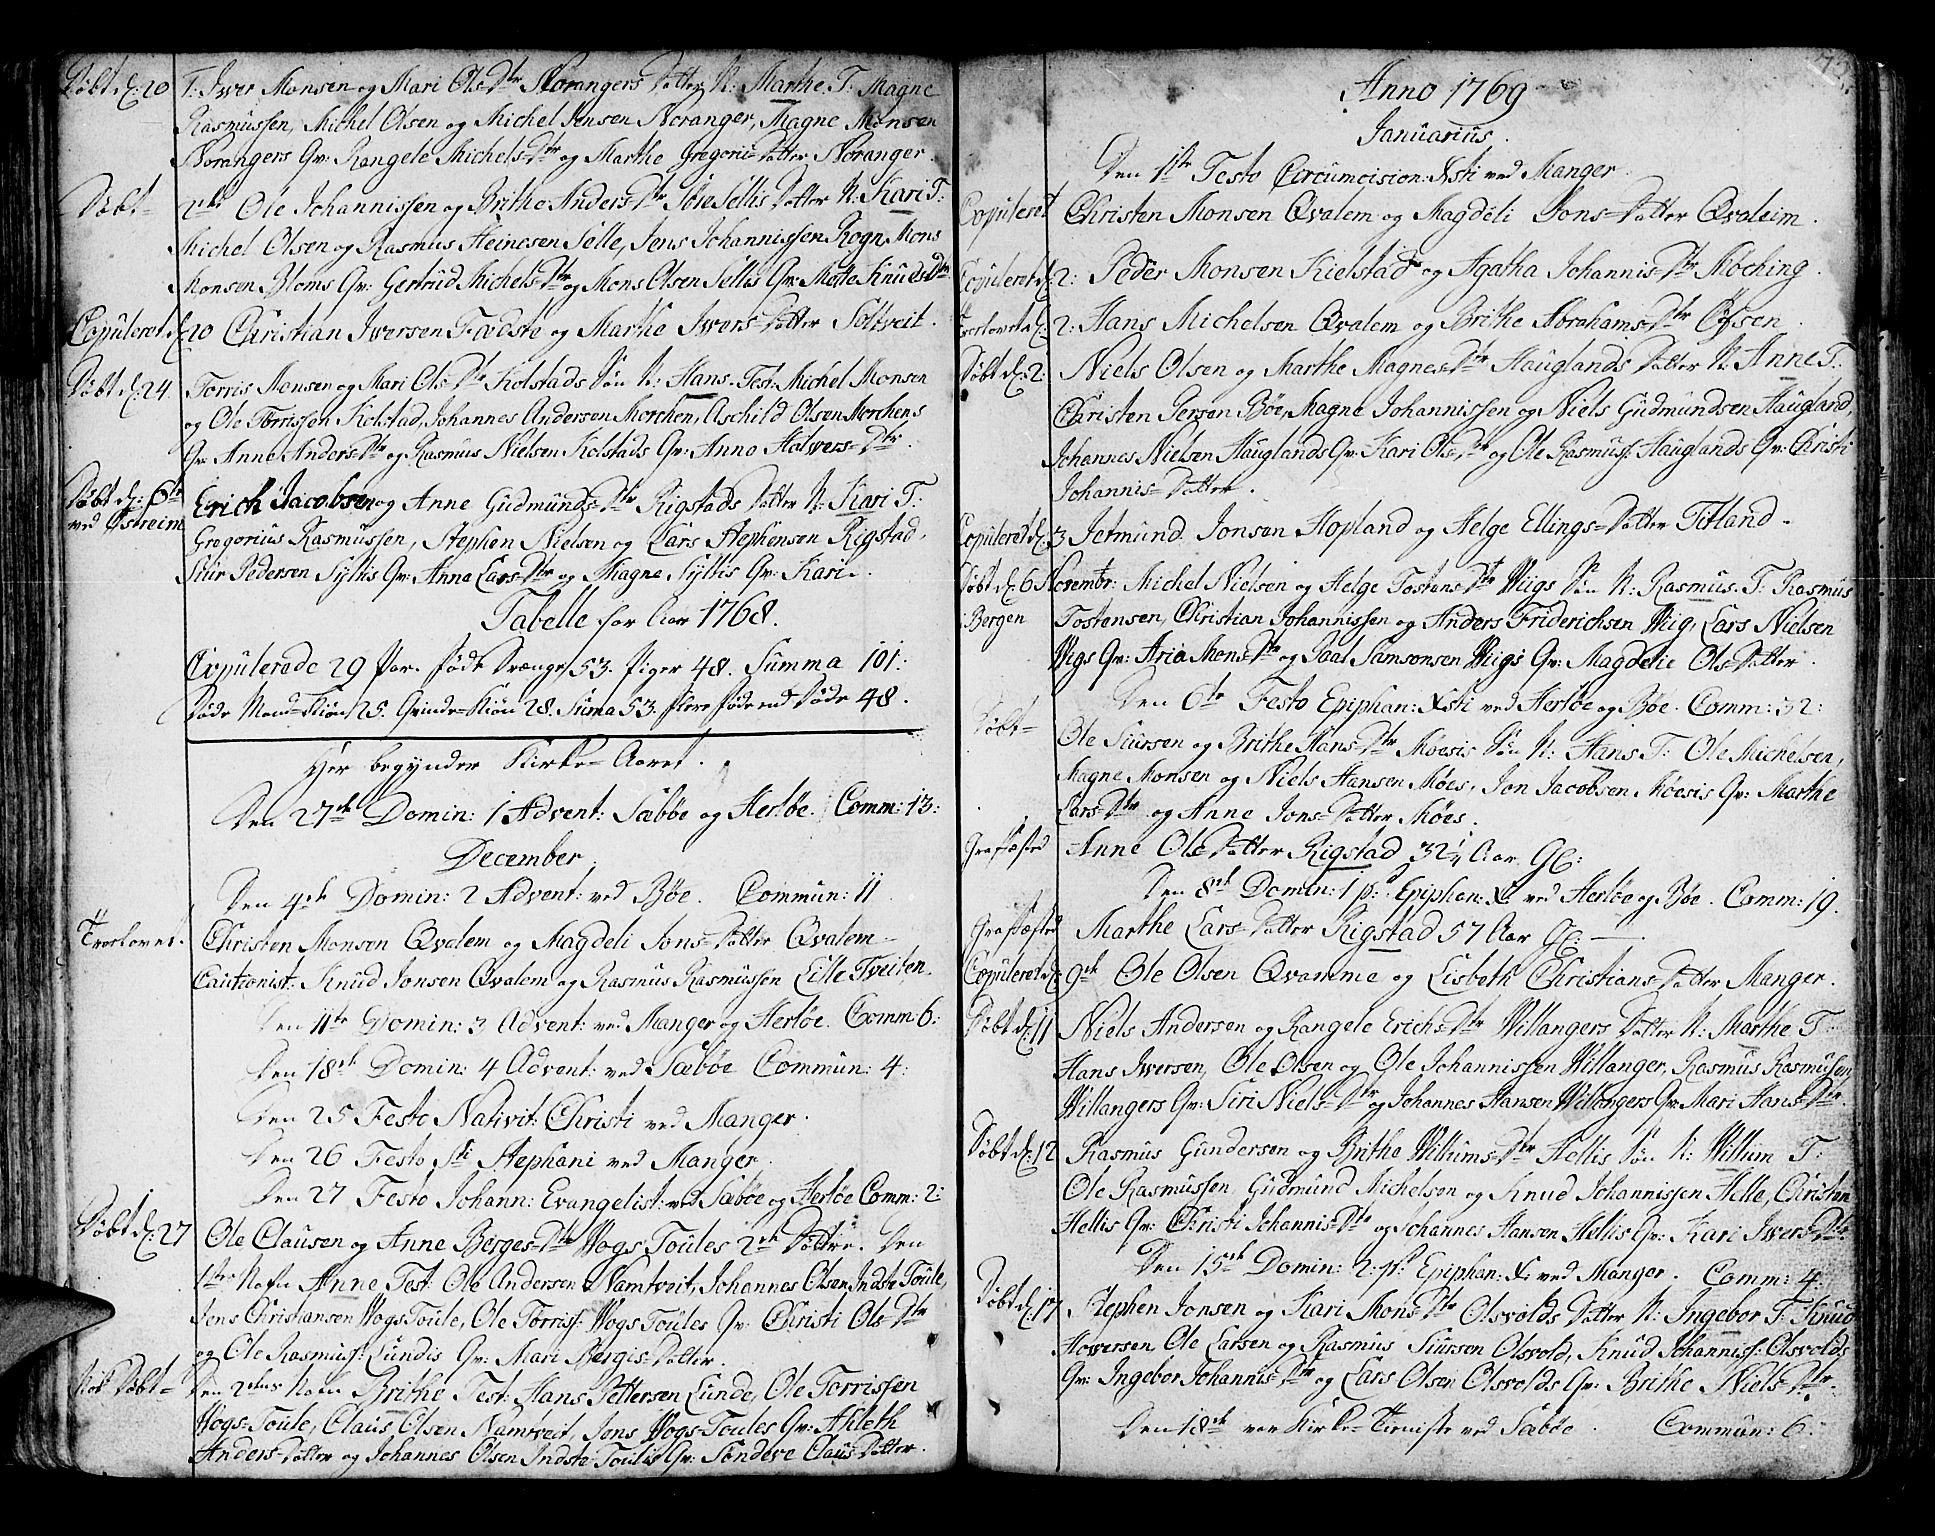 Døbt d: 20 F: Iver Monsen og Mari Ols-Dtr Norangers Datter N: Marthe T: Magne
Rasmussen, Michel Olsen og Michel Jensen Noranger, Magne Monsen
Norangers Qv: Rangele Michels-Dtr og Marthe Gregorii-Datter Noranger.
Døbt- 2de Ole Johannissen og Brithe Anders-Dtr IdreSellis Datter N: Kari T:
Michel Olsen og Rasmus Heinesen Selle, Jens Johannissen Rogn, Mons
Monsen Bloms Qv: Gertrud Michels-Dtr og Mons Olsen Sellis Qv: Mette Knuds-Dtr
Copuleret d: 20 Christian Iversen Fædste og Marthe Ivers-Datter Soltveit.
Døbt d: 24. Torris Monsen og Mari Ols-Dtr Kolstads Søn N: Hans. Test: Michel Monsen
og Ole Torrissen Kolstad, Johannes Andersen Morchen, Aschild Olsen Morchens
Qv: Anne Anders-Dtr og Rasmus Nielsen Kolstads Qv: Anne Halvers-Dtr.
Døbt d: 6te Erich Jacobsen og Anne Gudmunds-Dtr Rigstads Datter N: Kari T:
ved Østreim Gregorius Rasmussen, Stephen Nielsen og Lars Stephensen Rigstad,
Siur Pedersen Syltis Qv: Anne Lars-Dtr og Magne Syltis Qv: Kari.
Tabelle for Aar 1768.
Copulerede 29 Par. fødde Drænge 53. Piger 48. Summa 101:
Døde Mand-Kiøn 25. Qvinde-Kiøn 28. Suma 53. flere fødde end Døde 48.
Her begynder Kirke-Aaret.
Den 27de Domin: 1 Advent: Sæbøe og Herløe. Comm: 13:
December
Den 4de Domin: 2 Advent: ved Bøe. Commun: 11
Trolovet. Christen Monsen Qvalem og Magdeli Jons-Datter Qvalem
Cautionist: Knud Jonsen Qvalem og Rasmus Rasmussen Lille Tveiten.
Den 11te Domin: 3 Advent: ved Manger og Herløe. Comm: 6:
Den 18de Domin: 4 Advent: ved Sæbøe Commun: 4:
Den 25 Festo Nativit: Christi ved Manger.
Den 26 Festo Sti Stephani ved Manger.
Den 27 Festo Johann: Evangelist: ved Sæbøe og Herløe Comm: 2:
Døbt d: 27 Ole Clausen og Anne Berges-Dtr Vogs Toules 2de Døttre. Den
1stes Nafn Anne Test: Ole Andersen Namtveit, Johannes Olsen Indste Toule,
Jens Christansen Vogs Toule, Ole Torriss: Vogs Toules Qv: Christi Ols-Dtr
og Ole Rasmuss: Lundis Qv: Mari Bergis-Datter.
Nok Døbt- Den 2dens Nafn Brithe Test: Hans Pettersen Lunde, Ole Torrissen
Vogs-Toule, Claus Olsen Namtveit, Jens Vogs-Toules Qv: Ahleth
Anders-Datter og Johannes Olsen Indste-Toulis Qv: Sændeve Claus-Datter.
Anno 1769
Januarius.
Den 1ste Festo Circumcision: Xsti ved Manger.
Copuleret Christen Monsen Qvalem og Magdeli Jons-Datter Qvaleim.
Copuleret d: 2: Peder Monsen Kielstad og Agatha Johannis-Dtr Moching.
Trolovet d: 2: Hans Michelsen Qvalem og Brithe Abrahams-Dtr Øfsen.
Døbt d: 2: Niels Olsen og Marthe Magnes-Dtr Hauglands Datter N: Anne T:
Christen Persen Bøe, Magne Johannissen og Niels Gudmundsen Haugland,
Johannes Nielsen Hauglands Qv: Kari Ols-Dtr og Ole Rasmuss: Hauglands Qv: Christi
Johannis-Datter.
Copuleret d: 3 Jetmund Jonsen Hopland og Helge Ellings-Datter Titland.
Døbt d: 6 Novembr: Michel Nielsen og Helge Tostens-Dtr Wiigs Søn N: Rasmus. T: Rasmus
i Bergen Tostensen, Christian Johannissen og Anders Friderichsen Wiig, Lars Nielsen
Wigs Qv: Aria Mons-Dtr og Paal Samsonsen Wiigs Qv: Magdelie Ols-Datter.
Den 6te Festo Epiphan: Xsti ved Herløe og Bøe. Comm: 32:
Døbt- Ole Siursen og Brithe Hans-Dtr Møesis Søn N: Hans T: Ole Michelsen,
Magne Monsen og Niels Hansen Møes, Jon Jacobsen Møesis Qv: Marthe
Lars-Dtr og Anne Jons-Datter Møes.
Grafæsted Anne Ole-Datter Rigstad 32 1/4 Aar Gl:
Den 8de Domin: 1 p: Epiphan: X: ved Herløe og Bøe. Comm: 19.
Grafæsted Marthe Lars-Datter Rigstad 57 Aar Gl:
Copuleret d: 9de Ole Olsen Qvamme og Lisbeth Christians-Datter Manger.
Døbt d: 11 Niels Andersen og Rangele Erichs-Dtr Willangers Datter N: Marthe T:
Hans Iversen, Ole Olsen og Ole Johannissen Willanger, Rasmus Rasmussen
Willangers Qv: Siri Niels-Dtr og Johannes Hansen Willangers Qv: Mari Hans-Dtr.
Døbt d: 12 Rasmus Gundersen og Brithe Willums-Dtr Hellis Søn N: Willum T:
Ole Rasmussen, Gudmund Michelsen og Knud Johannissen Helle, Christen
Hellis Qv: Christi Johannis-Dtr og Johannes Hansen Hellis Qv: Kari Ivers-Dtr
Den 15de Domin: 2: p: Epiphan: X: ved Manger. Comm: 4.
Døbt d: 17 Stephen Jonsen og Kari Mons-Dtr Olsvolds Datter N: Ingebor T: Knud
Hoversen, Ole Larsen og Rasmus Siursen Olsvold, Knud Johanniss: Olsvolds
Qv: Ingebor Johannis-Dtr og Lars Olsen Olsvolds Qv: Brithe Niels-Dtr.
Den 18de var Kirke-Tieniste ved Sæbøe. Commun: 6: